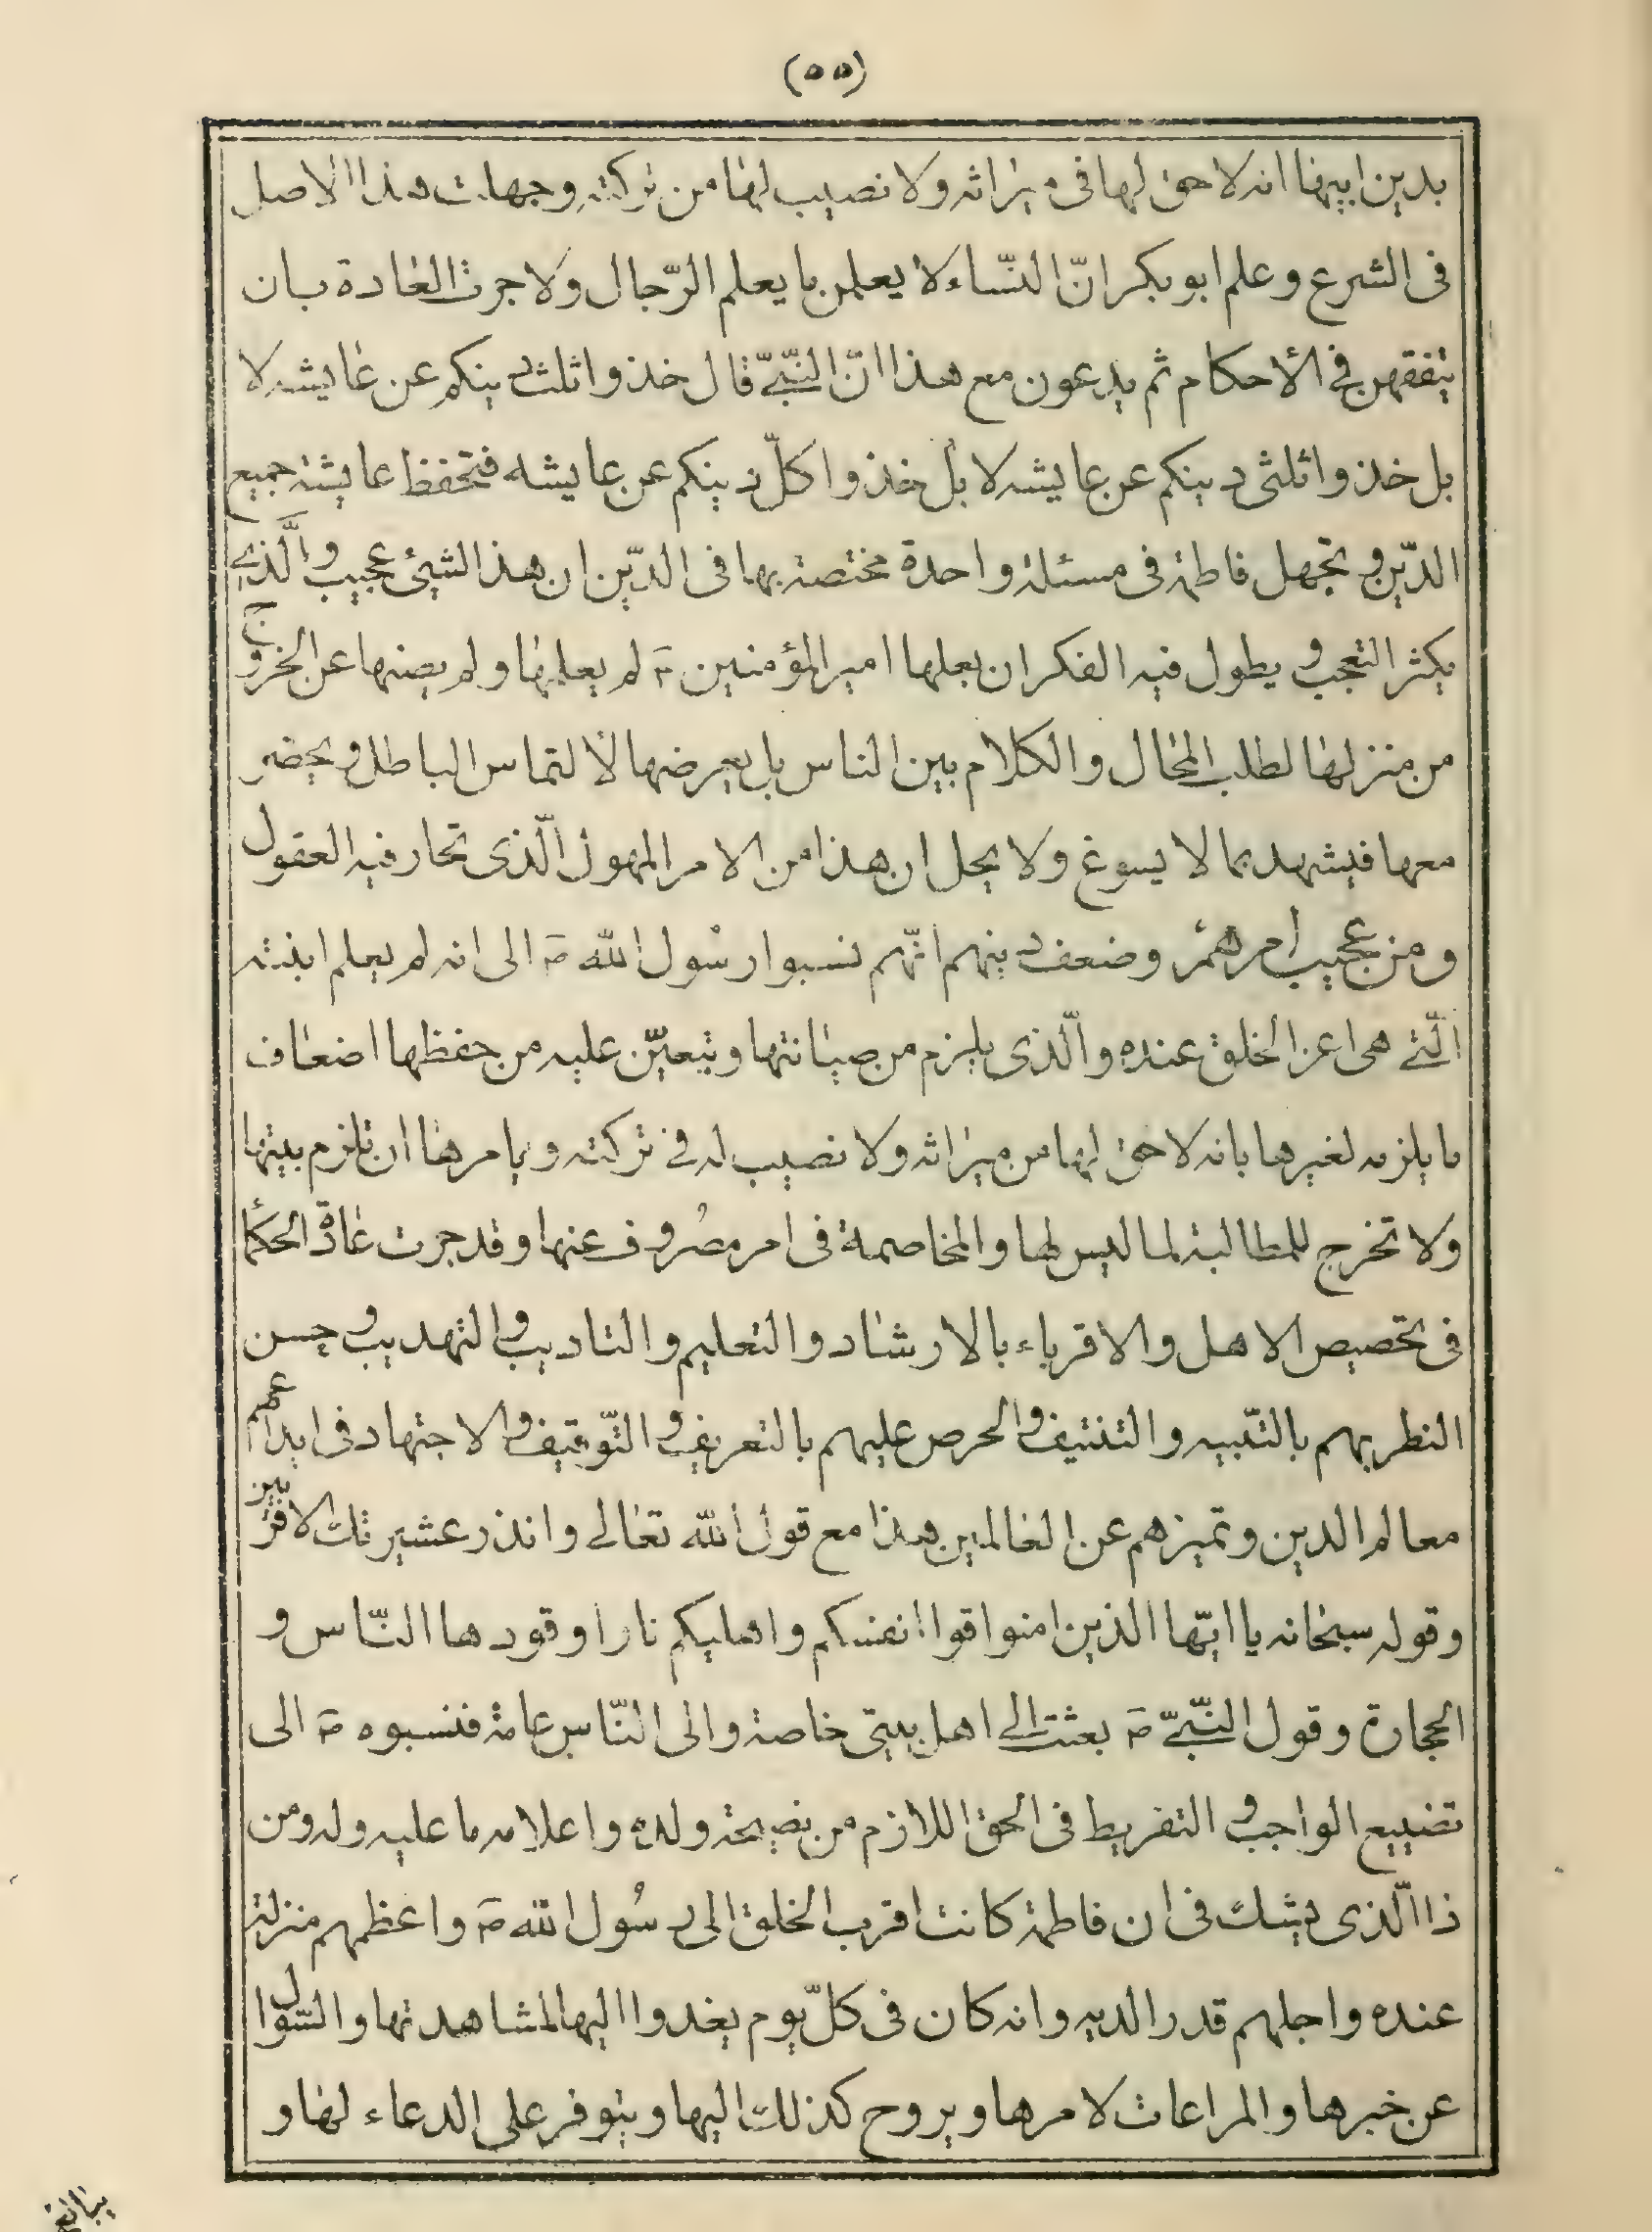 (٥٥)
بدين ابيها انه لا حق لها فى ميراثه ولا نصيب لها من تركته وجهلت هذا الاصل
فى الشرع وعلم ابوبكر انّ النّساء لا يعلمن ما يعلم الرّجال ولا جرت العادة بان
يتفقهن فى الأحكام ثم يدعون مع هذا انّ النّبىّ قال خذوا ثلث دينكم عن عايشه لا
بل خذوا ثلثى دينكم عن عايشه لا بل خذوا كلّ دينكم عن عايشه فتحفظ عايشة جميع
الدّين وتجهل فاطمة فى مسئلة واحدة مختصة بها فى الدّين ان هذا لشيئ عجيب والَّذى
يكثر التعجب و يطول فيه الفكر ان بعلها امير المؤمنين ؏ لم يعلمها ولم يصنها عن الخروج
من منزلها لطلب المحال والكلام بين الناس بل يعرضها لالتماس الباطل ويحضر
معها فيشهد بما لا يسوغ ولا يحل ان هذا من الامر المهول الّذى تحار فيه العقول
ومن عجيب أمرهم وضعف دينهم انّهم نسبوا رسُول الله ؐ الى انه لم يعلم ابنته
الّتى هى اعز الخلق عنده والّذى يلزم من صيانتها ويتعيّن عليه من حفظها اضعاف
ما يلزمه لغيرها بانه لا حق لها من ميراثه ولا نصيب له فى تركته ويامرها ان تلزم بيتها
ولا تخرج للمطالبة لما ليس لها والمخاصمة فى امر مصُروف عنها وقد جرت عادة الحكمأ
فى تخصيص الاهل والاقرباء بالارشاد والتعليم والتاديب والتهديب وحسن
النظر بهم بالتّبيه والتنتيف والحرص عليهم بالتعريف والتّوقيف والاجتهاد فى ايداعهم
معالم الدين وتميزهم عن العالمين هذا مع قول الله تعالى وانذر عشيرتك الاقربين
وقوله سبحانه يا ايّها الذين امنوا قوا انفسكم واهليكم نارا وقودها النّاس و
الحجارة وقول النّبىّ ؐ بعثت الى اهل بيتى خاصة والى النّاس عامة فنسبوه ؐ الى
تضييع الواجب و التفريط فى الحق اللازم من نصيحة ولده واعلامه ما عليه وله ومن
ذا الّذى يشك فى ان فاطمة كانت اقرب الخلق الى رسُول الله ؐ واعظمهم منزلة
عنده واجلهم قدر الديه وانه كان فى كلّ يوم يغدوا اليها لمشاهدتها والسّوال
عن خبرها والمراعات لامرها ويروح كذلك اليها ويتوفر على الدعاء لها و